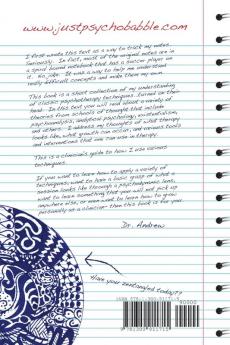 www.justpsychobabble.com
I first wrote this text as a way to trick my notes
seriously. In fact, most of the original notes are in
a spiral bound notebook that has a soccer player on
it. No joke. It was a way to help me understand
really difficult concepts and make them my own.
This book is a short collection of my understanding
of classic psychotherapy techniques
then. In this text you will read about a variety of
theories from schools of thought that include
psychoanalysis, analytical psychology, existentialism,
and others. I address my thoughts of what therapy
looks like, what growth can occur, and various tools
and interventions that we can use in therapy.
This is a clinician's guide to how I use various
techniques.
If you want to learn how to apply a variety of
techniques; want to have a basic grasp of what a
session looks like through a psychodynamic lens;
want to learn something that you will not pick up
anywhere else, or even want to learn how to grow
personally as a clinician then this book is for you.
Dr. Andrew
Have you zentangled today??
ISBN 978-1-300-91171-5
90000
9 781300 911715